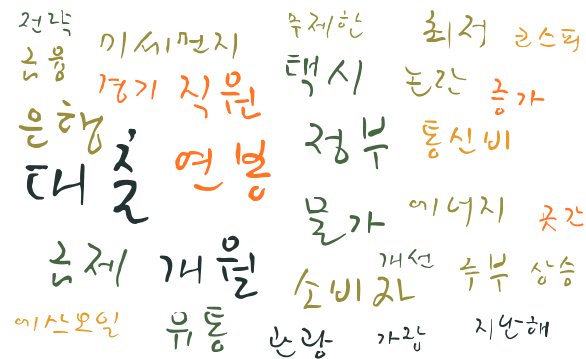 전략
미세먼지
무제한
최저
코스피
금융
경기
직원
택시
논란
증가
은행
대출
연봉
정부
통신비
물가
에너지
곳간
금제
개월
소비자
개선
주부
상승
예산오일
유통
관광
가람
지난해